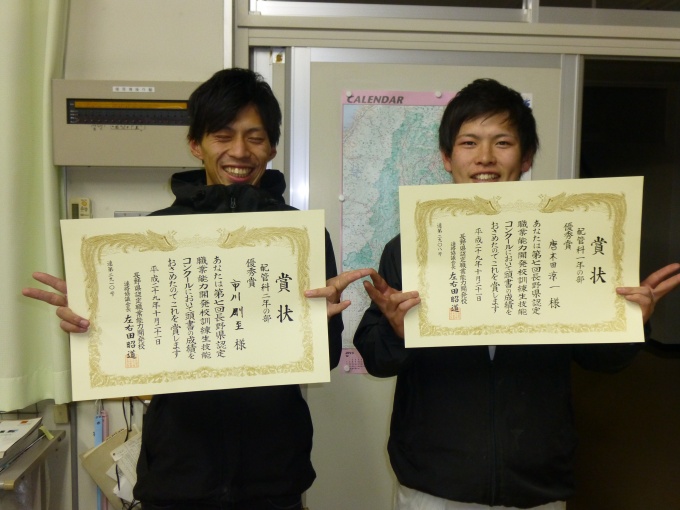 CALENDAR
賞状
配管科二年の部
優秀賞
市川剛至様
あなたは第七回長野県認定
職業能力開発校訓練生技能
コンクールにおいて頭書の成績を
おさめたのでこれを賞します
平成二十九年十月二十一日
長野県認定職業能力開発校
連絡協議会長 左右田昭道
賞状
配管科一年の部
優秀賞
唐木田淳一様
あなたは第七回長野県認定
職業能力開発校訓練生技能
コンクールにおいて頭書の成績を
おさめたのでこれを賞します
平成二十九年十月二十一日
長野県認定職業能力開発校
連絡協議会長 左右田昭道